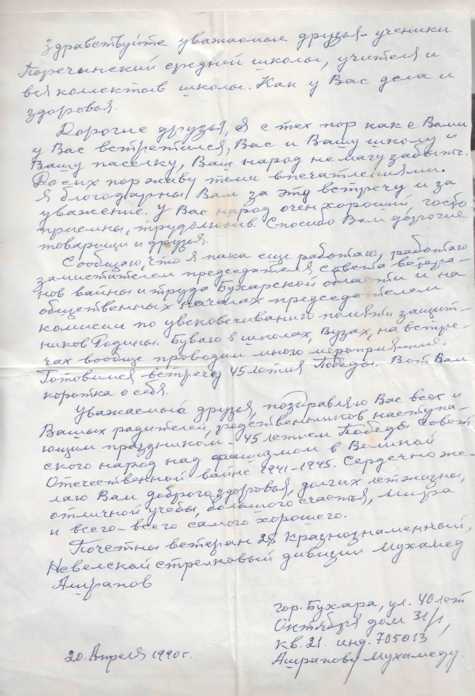 Здравствуйте уважаемые друзья-ученики
Поречьинский средной школы, учителя и
вся колектив школы. Как у Вас дела и
здоровья.
Дорогие друзья, я с тех пор как с Вами
у Вас встретился, Вас и Вашу школу и
Вашу паселку, Ваш народ не магу забыть.
До сих пор живу теми впечатлениями.
Я благодарны Вам за эту встречу и за
уважение. У Вас народ очен хороший, госто
приемны, трудолюбив. Спосибо Вам дорогие
товарищи и друзья.
Сообщаю, что я пака еще работаю, работаю
заместителем председателя Совета ветера-
нов вайны и труда Бухарской области и на
общественных началах председателем
комисии по увековечиванию помяти защит-
ников Родины. Бываю в школах, Вузах, на встре-
чах вообще проводим много мероприятие.
Готовимся встречу 45 летия Победы. Вот Вам
коротка о себя.
Уважаемыи друзья, поздравляю Вас всех и
Вашых радителей, родственников наступа-
ющим праздником - 45 летием Победы Совет-
ского народ над фашизмом в Великой
Отечественной вайне 1941-1945. Сердечно же-
лаю Вам доброго здоровья, долгих лет жизни,
отличной учебы, большого счастья, мира
и всего-всего самого хорошего.
Почетны ветеран 24 Краснознаменный,
Невелской стрелковый дивизии Мухамед
Ашрапов
гор. Бухара, ул. 40 лет
Октября дом 31/1,
кв. 21. инд. 705013,
Ашрапову Мухамеду.
20 Апреля 1990г.